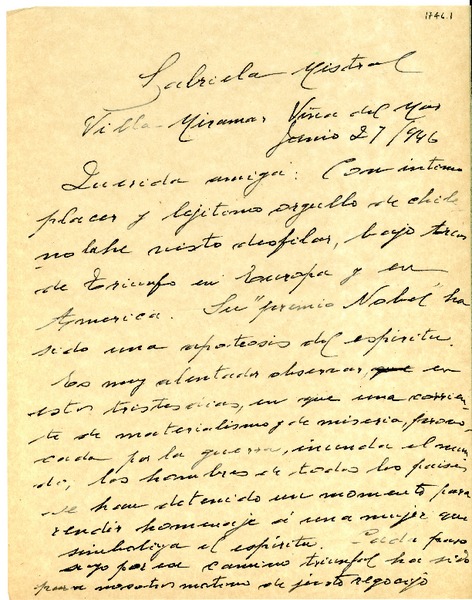 1746.1
Gabriela Mistral
Villa Miramar, Viña del Mar
Junio 27/946
Querida amiga: Con íntimo
placer y lejítimo orgullo de chile
no la he visto desfilar, bajo arcos
de triunfo en Europa y en
America. Su "premio Nobel" ha
sido una apoteosis del espíritu.
Es muy alentador observar, que en
estos tristes dias, en que una corrien
te de materialismo y de miseria, provo
cada por la guerra, inunda el mun
do, los hombres de todos los paises
se han detenido un momento para
rendir homenaje á una mujer que
simboliza el espíritu. Cada paso
suyo por ese camino triunfal ha sido
para nosotros motivo de justo regocijo